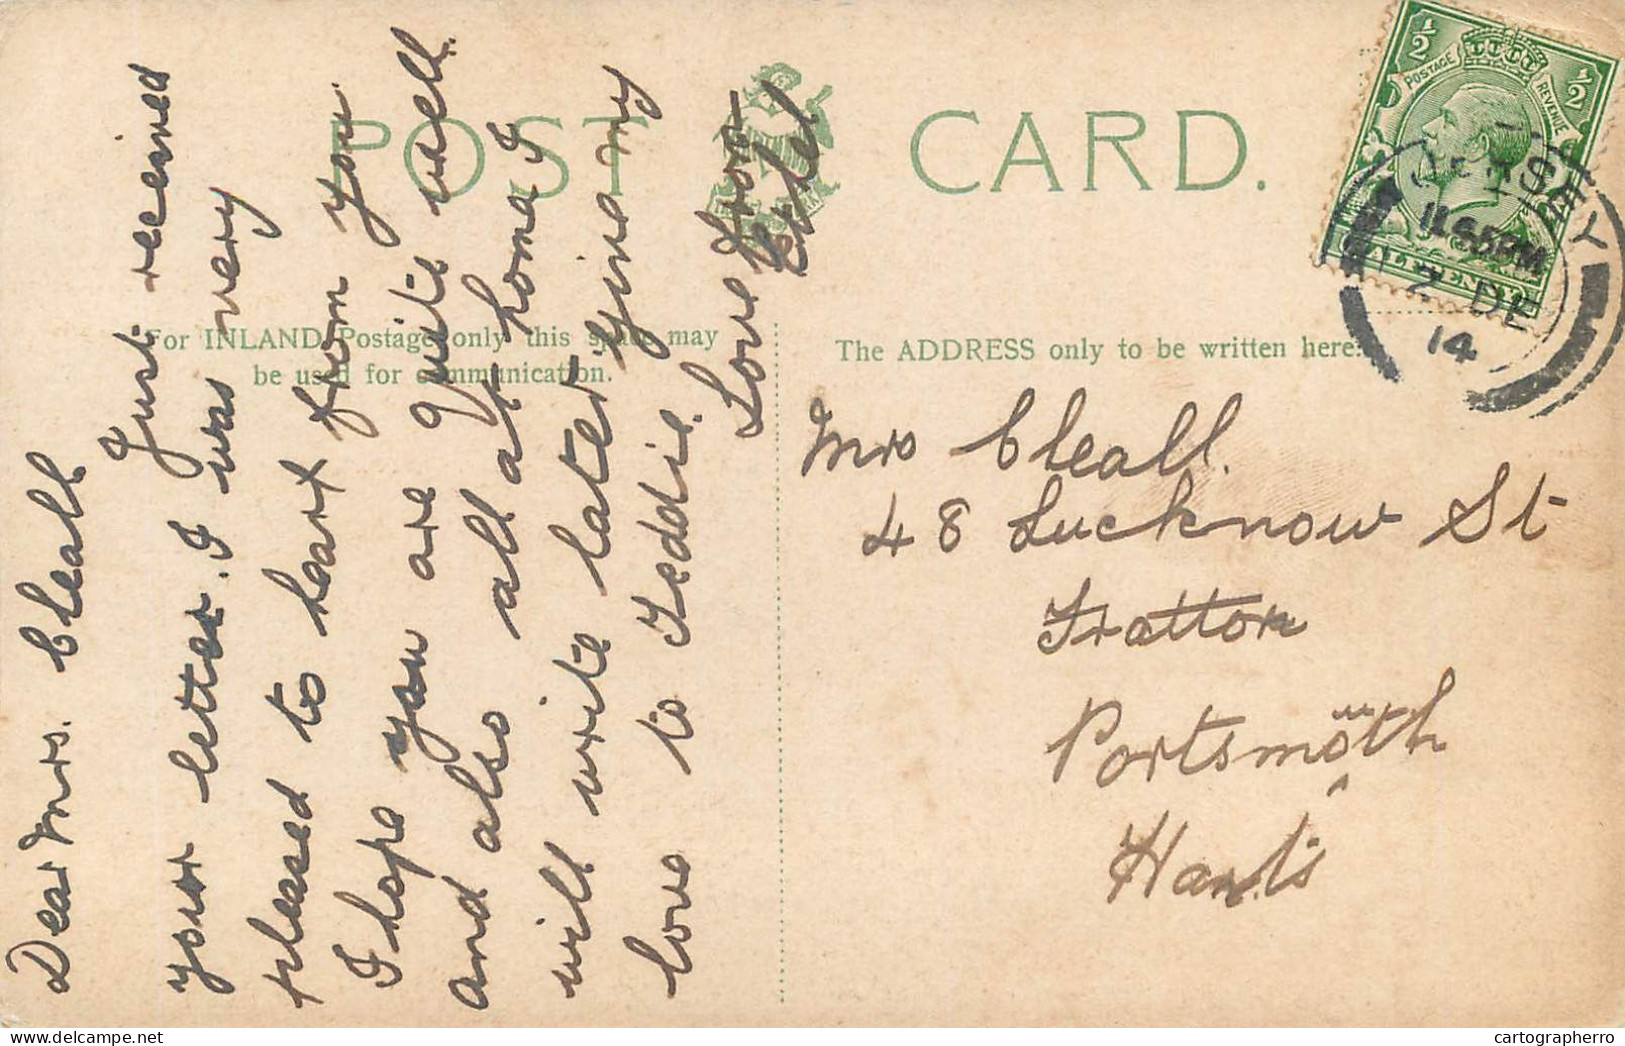 POST CARD.
For INLAND Postage only this space may
be used for communication.
The ADDRESS only to be written here.
Dear Mrs. Cleall
Just received
your letter. I was very
pleased to heart from you
I hope you are Quite well.
and also all at home I
will write later give my
love to Teddie.
Love from
Ethel
Mrs Cleall.
48 Lucknow St
Fratton
Portsmouth
Hants
½ ½
POSTAGE REVENUE
HALFPENNY
JERSEY
2 DE
14
cartographerro
delcampe.net